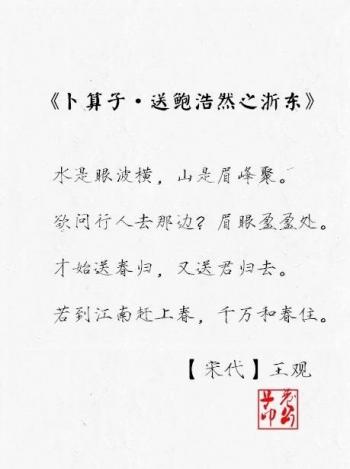 《卜算子·送鲍浩然之浙东》
水是眼波横，山是眉峰聚。
欲问行人去那边？眉眼盈盈处。
才始送春归，又送君归去。
若到江南赶上春，千万和春住。
【宋代】王观